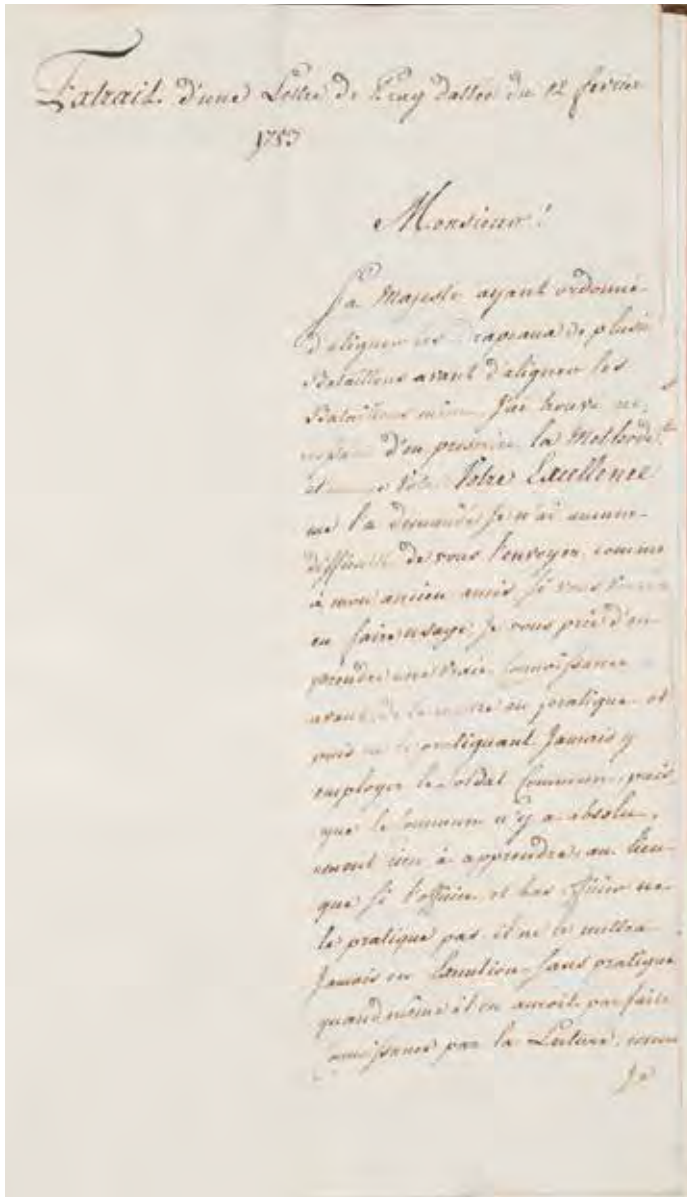 Extrait d'une Lettre de Prag dattée du 12 fevrier
1783
Monsieur!
Sa Majesté ayant ordonné
d'aligner les Drapeaux de plusie
Bataillons avant d'aligner les
Bataillons même, J'ai trouvé ne,
d'en prescrire la Methode,
et Votre Excellence
me l'a demandé Je n'ai aucune
difficulté de vous l'envoyer, comme
à mon ancien amis, si vous
en faire usage, Je vous prie d'en
prendre une vraie Connoissance
avant de le mettre en pratique et
mais ne le pratiquant Jamais y
employer le soldat Commun, puis
que le Commun n'y a absolu,
ement rien à apprendre, au lieu
que si l'officier et bas officier ne
le pratique pas il ne le mettra
Jamais en Execution sans pratique
quand même il en auroit parfaite
Connoissance par la Lecture, comme
Je